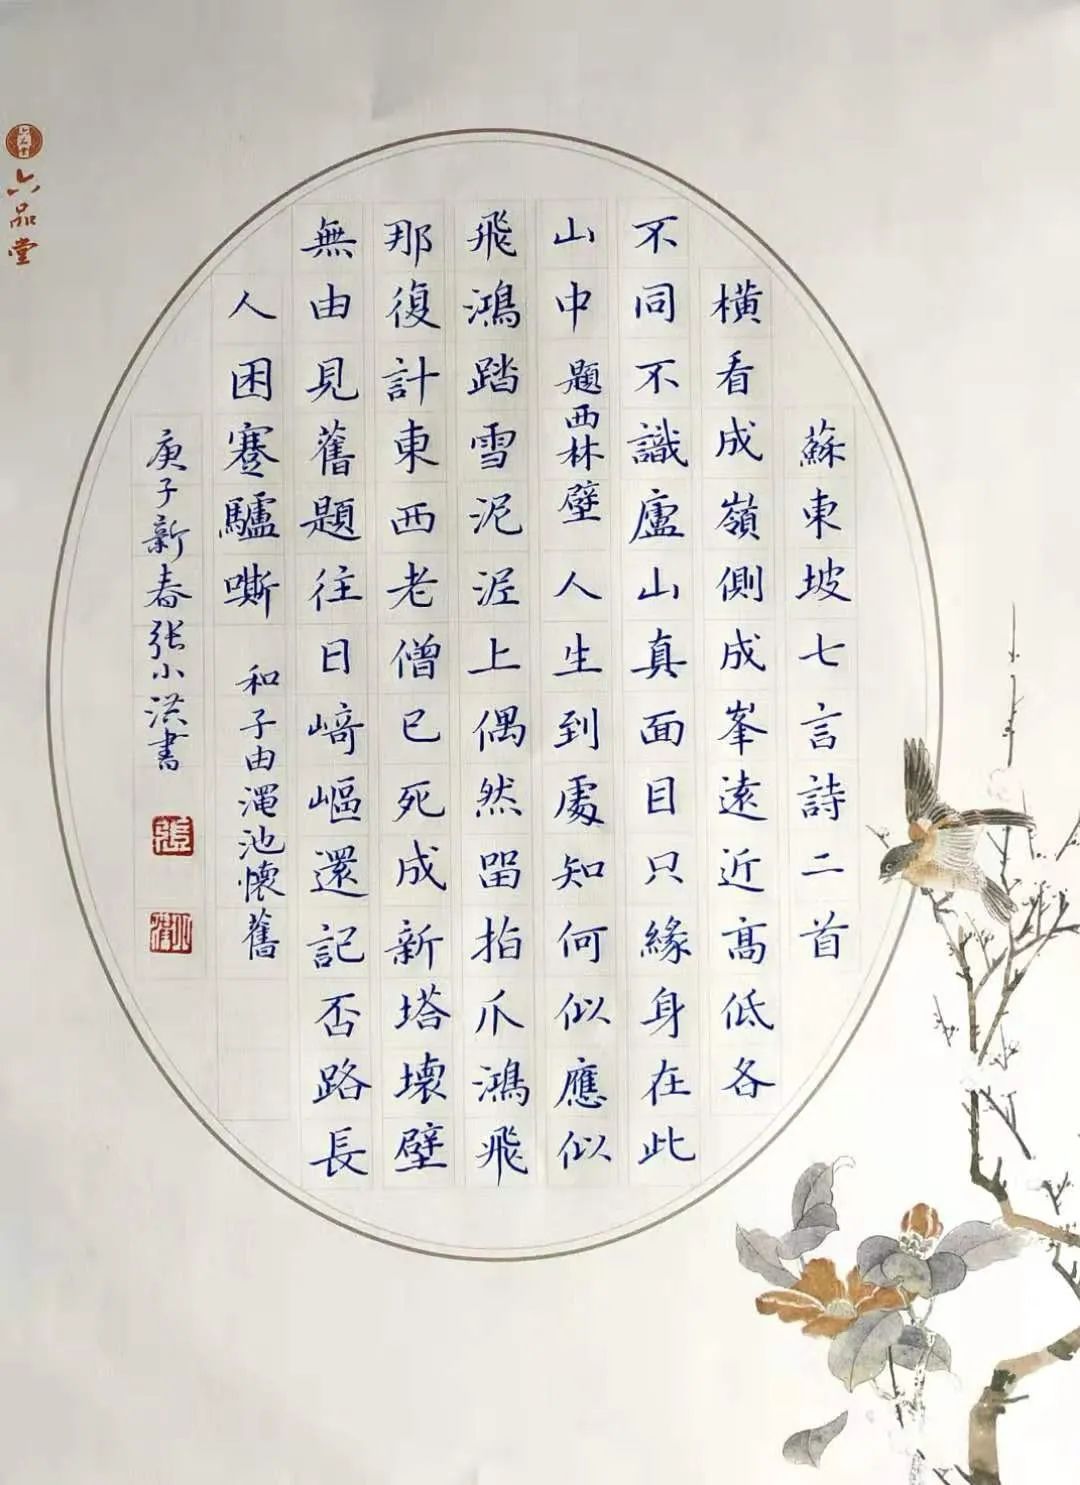 蘇東坡七言詩二首
橫看成嶺側成峯遠近高低各
不同不識廬山真面目只緣身在此
山中 題西林壁 人生到處知何似應似
飛鴻踏雪泥泥上偶然留指爪鴻飛
那復計東西老僧已死成新塔壞壁
無由見舊題往日崎嶇還記否路長
人困蹇驢嘶 和子由澠池懷舊
庚子新春张小洪書
張
小洪
六品堂